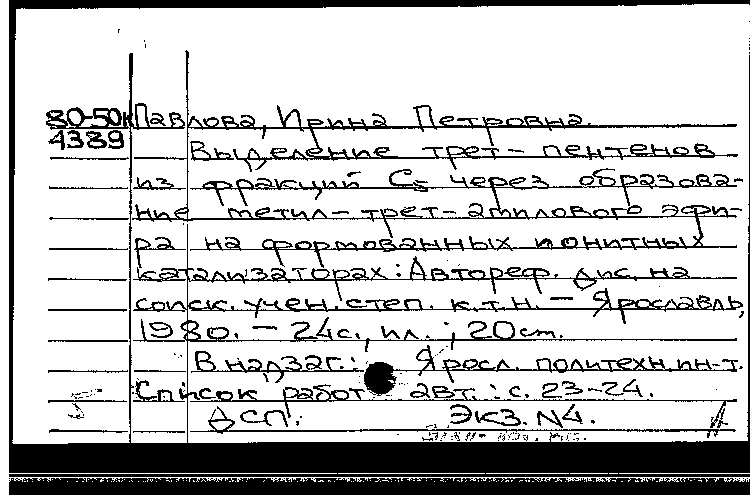 80-50к Павлова, Ирина Петровна.
4389
Выделение трет-пентенов
из фракций C5 через образова-
ние метил-трет-амилового эфи-
ра на формованных ионитных
катализаторах: Автореф. дис. на
соиск. учен. степ. к.т.н. – Ярославль,
1980. – 24с., ил.; 20см.
В надзаг.: Яросл. политехн. ин-т.
Список работ авт.: с. 23-24.
ДСП. Экз. N4.